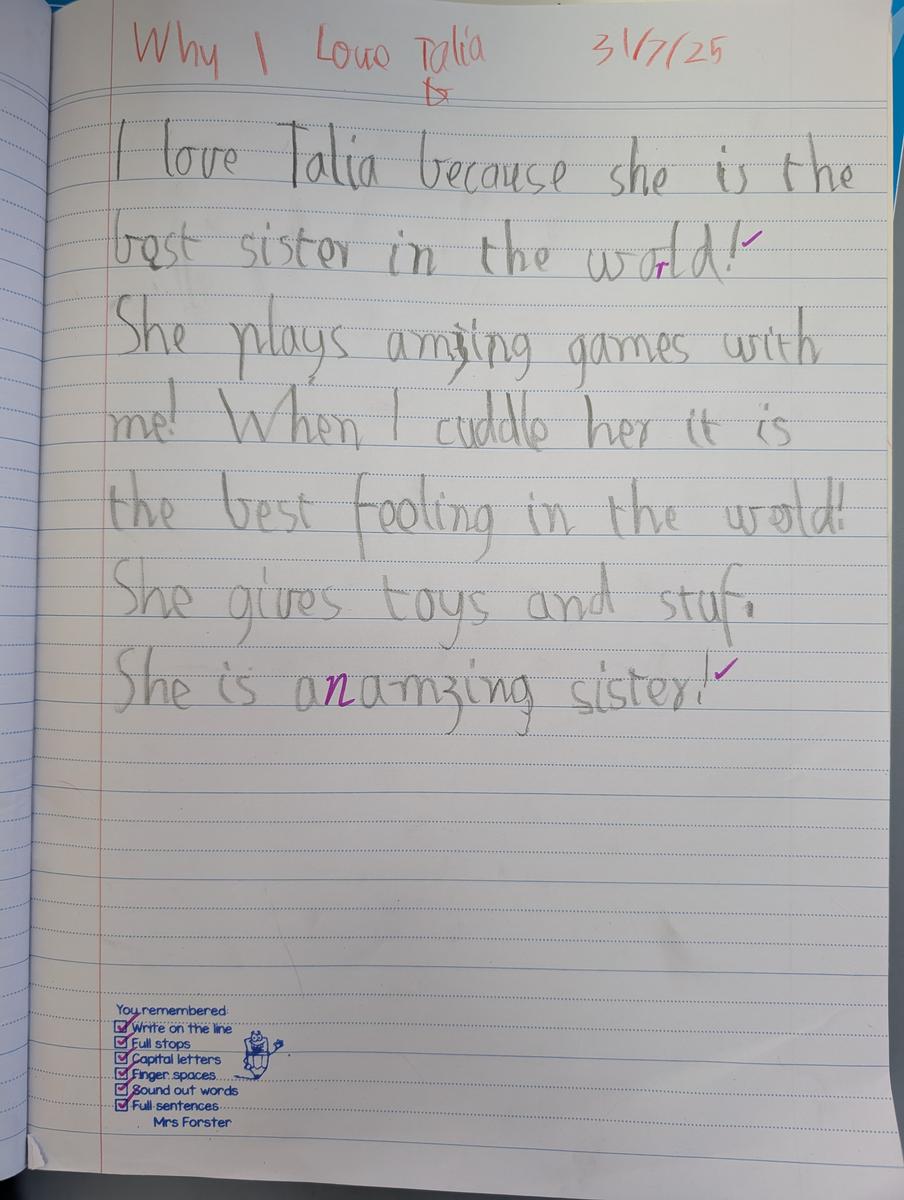 Why I Love Talia 31/7/25
I love Talia because she is the
best sister in the world!
She plays amzing games with
me! When I cuddle her it is
the best feeling in the wold!
She gives toys and stuf.
She is an amzing sister!
You remembered:
Write on the line
Full stops
Capital letters
Finger spaces
Sound out words
Full sentences
Mrs Forster